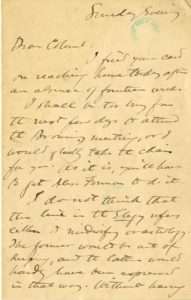 Sunday Evening
Dear Colonel:
I find your card
on reaching home today after
an absence of fourteen weeks.
I shall be too busy for
the next few days to attend
the Browning meeting, or I
would gladly take the chair
for you. As it is, you'll have
to get Mrs. to do it.
I do not think that
this line in the Elegy refers
either to midwifery or astrology.
The former would be out of
, and the latter would
hardly have been expressed
in that way. Without having